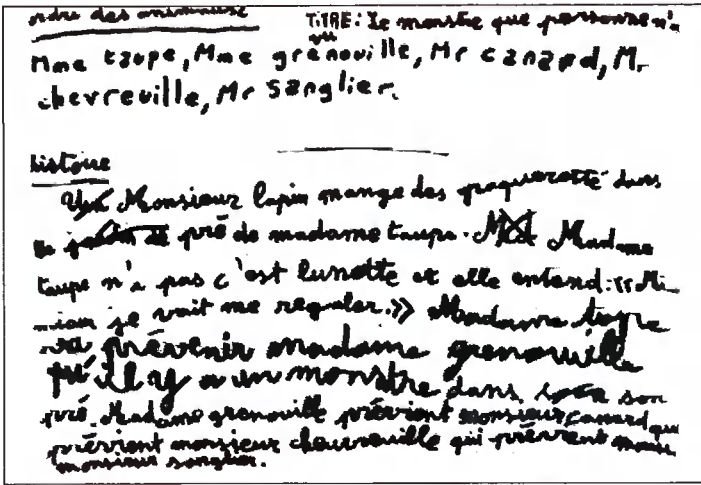 ordre des animaux TITRE: Le monstre que personne n'a
vu
Mme taupe, Mme grenouille, Mr canard, Mr
chevreuille, Mr sanglier.
histoire
Un Monsieur lapin mange des paquerette dans
le pré de madame taupe. Madame
taupe n'a pas c'est lunette et elle entend: «Mi-
miam je vait me regaler.» Madame taupe
va prévenir madame grenouille
qu'il y a un monstre dans son
pré. Madame grenouille prévient monsieur canard qui
prévient monsieur chevreuille qui prévient
monsieur sanglier.